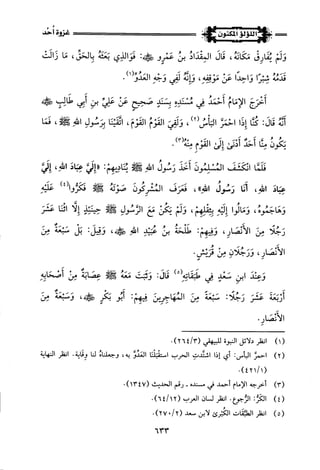 اللؤلؤ المكنون
غزوة أحد
وَلَمْ يُفَارِقْ مَكَانَهُ، قَالَ المِقْدَادُ بنُ عَمْرٍو ﷺ: فَوَالذِي بَعَثَهُ بِالحَقِّ، مَا زَالَتْ
قَدَمُهُ شِبْرًا وَاحِدًا عَنْ مَوْقِفِهِ، وَإِنَّهُ لَفِي وَجْهِ العَدُوِّ(١).
أَخْرَجَ الإِمَامُ أَحْمَدُ فِي مُسْنَدِهِ بِسَنَدٍ صَحِيحٍ عَنْ عَلِيِّ بنِ أَبِي طَالِبٍ ﷺ
أَنَّهُ قَالَ: كُنَّا إِذَا احْمَرَّ البَأْسُ(٢)، وَلَقِيَ القَوْمُ القَوْمَ، اتَّقَيْنَا بِرَسُولِ اللهِ ﷺ، فَمَا
يَكُونُ مِنَّا أَحَدٌ أَدْنَى إِلَى القَوْمِ مِنْهُ(٣).
فَلَمَّا انْكَشَفَ المُسْلِمُونَ أَخَذَ رَسُولُ اللهِ ﷺ يُنَادِيهِمْ: «إِلَيَّ عِبَادَ اللهِ، إِلَيَّ
عِبَادَ اللهِ، أَنَا رَسُولُ اللهِ»، فَعَرَفَ المُشْرِكُونَ صَوْتَهُ ﷺ فَكَرُّوا(٤) عَلَيْهِ
وَهَاجَمُوهُ، وَمَالُوا إِلَيْهِ بِثِقَلِهِمْ، وَلَمْ يَكُنْ مَعَ الرَّسُولِ ﷺ حِينَئِذٍ إِلَّا اثْنَا عَشَرَ
رَجُلًا مِنَ الأَنْصَارِ، وَفِيهِمْ: طَلْحَةُ بنُ عُبَيْدِ اللهِ ﷺ، وَقِيلَ: بَلْ سَبْعَةٌ مِنَ
الأَنْصَارِ، وَرَجُلَانِ مِنْ قُرَيْشٍ.
وَعِنْدَ ابنِ سَعْدٍ فِي طَبَقَاتِهِ(٥) قَالَ: وَثَبَتَ مَعَهُ ﷺ عِصَابَةٌ مِنْ أَصْحَابِهِ
أَرْبَعَةَ عَشَرَ رَجُلًا: سَبْعَةٌ مِنَ المُهَاجِرِينَ فِيهِمْ: أَبُو بَكْرٍ ﷺ، وَسَبْعَةٌ مِنَ
الأَنْصَارِ.
(١) انظر دلائل النبوة للبيهقي (٢٦٤/٣).
(٢) احمرَّ البأس: أي إذا اشتدت الحرب استقبلنا العَدُوَّ به، وجعلناه لنا وِقَاية. انظر النهاية
(٤٢١/١).
(٣) أخرجه الإمام أحمد في مسنده - رقم الحديث (١٣٤٧).
(٤) الكَرُّ: الرُّجوع. انظر لسان العرب (٦٤/١٢).
(٥) انظر الطَّبَقات الكُبْرى لابن سعد (٢٧٠/٢).
٦٣٣